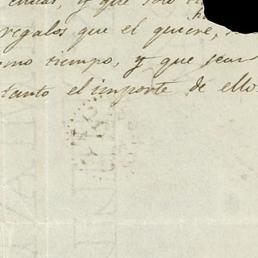 y que
regalos que el quiere,
mo tiempo, y que sean
tanto el importe de ello